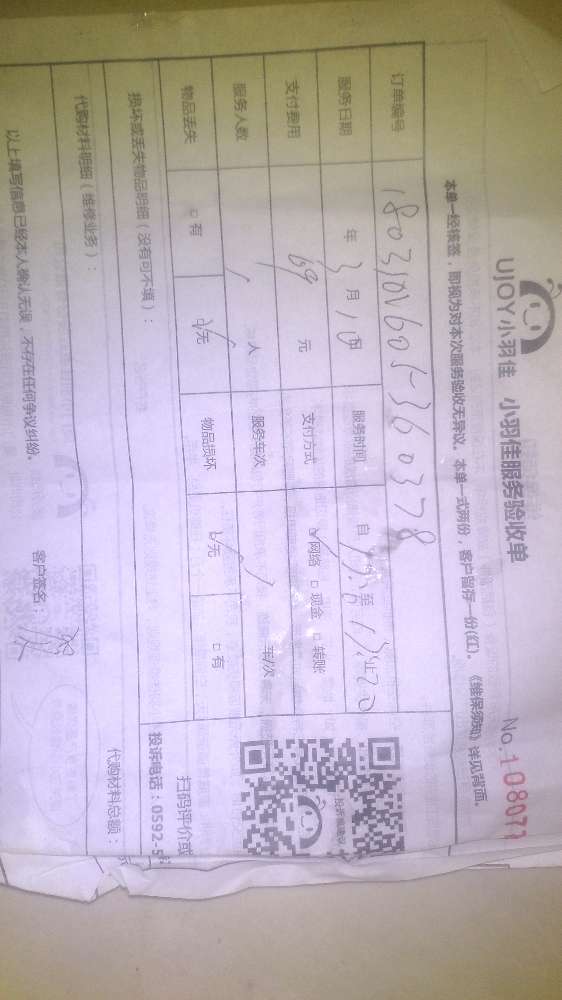 UJOY小羽佳 小羽佳服务验收单 No.108071
本单一经核签，即视为对本次服务验收无异议。本单一式两份，客户留存一份(红)。《维保须知》详见背面。
订单编号 180310V605360378
服务日期 年 3 月 10 日 服务时间 自 至 止
支付费用 69 元 支付方式 ☑网络 □现金 □转账
服务人数 1 人 服务车次 / 车/次
物品丢失 □有 ☑无 物品损坏 ☑无 □有
损坏或丢失物品明细（没有可不填）：
扫码评价或
投诉电话：0592-5
代购材料明细（维修业务）：
代购材料总额：
以上填写信息已经本人确认无误，不存在任何争议纠纷。
客户签名：